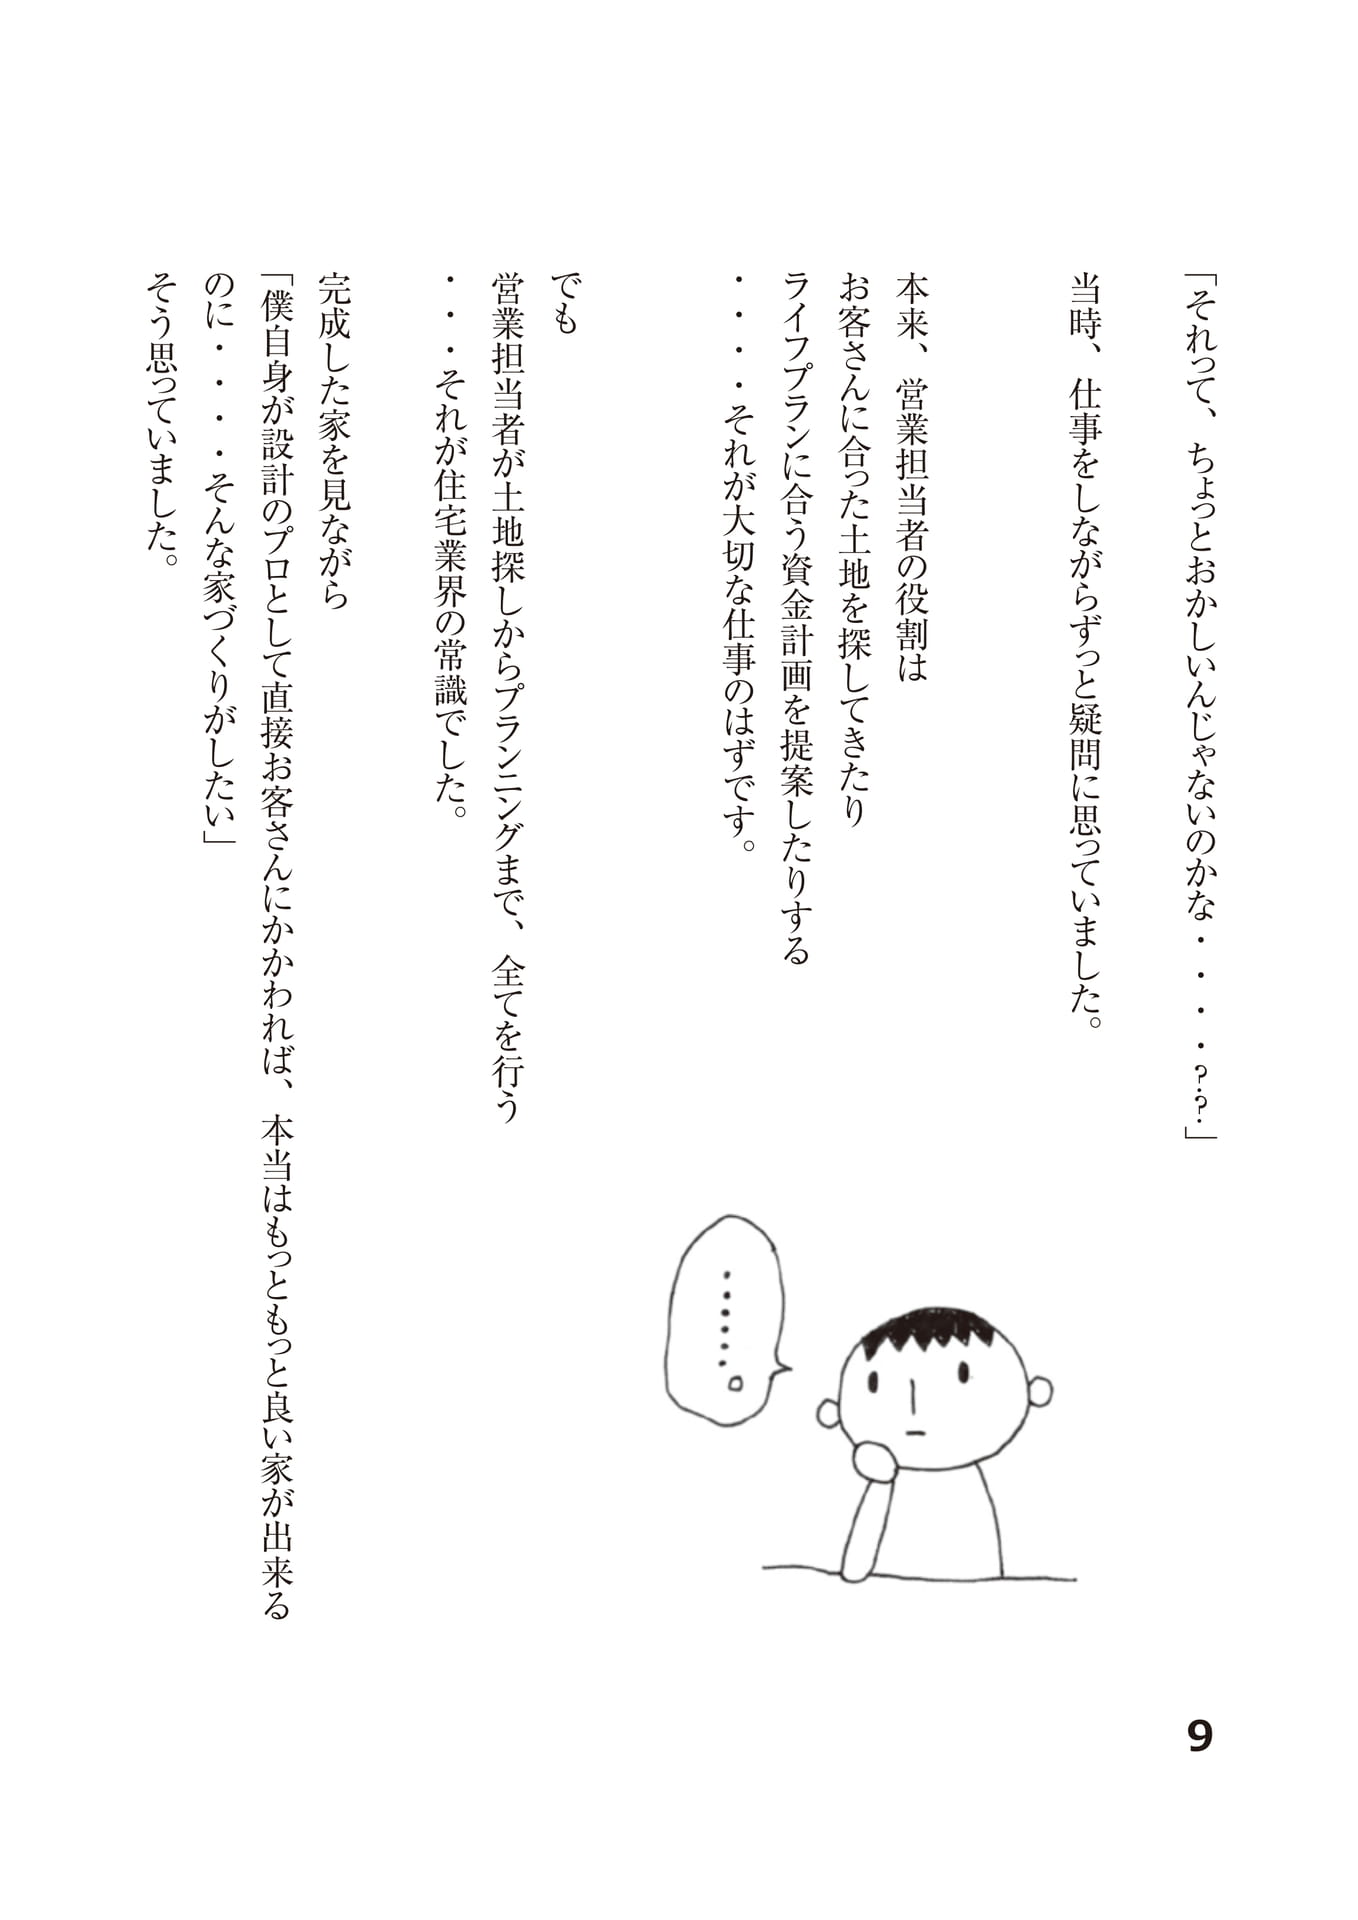 「それって、ちょっとおかしいんじゃないのかな・・・・??」
当時、仕事をしながらずっと疑問に思っていました。
本来、営業担当者の役割は
お客さんに合った土地を探してきたり
ライフプランに合う資金計画を提案したりする
・・・・それが大切な仕事のはずです。
でも
営業担当者が土地探しからプランニングまで、全てを行う
・・・それが住宅業界の常識でした。
完成した家を見ながら
「僕自身が設計のプロとして直接お客さんにかかわれば、本当はもっともっと良い家が出来る
のに・・・・そんな家づくりがしたい」
そう思っていました。
・・・・・・。
9